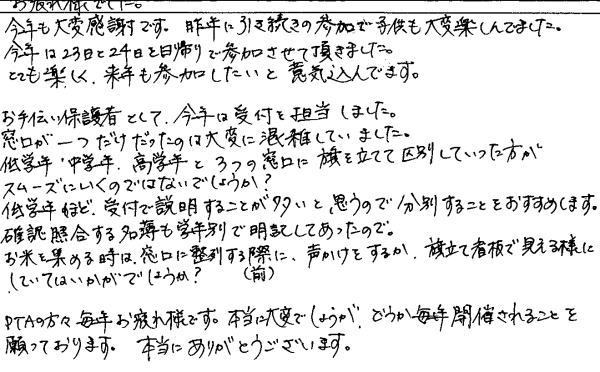 お疲れ様でした。
今年も大変感謝です。昨年に引き続きの参加で子供も大変楽しんでました。
今年は23日と24日と日帰りで参加させて頂きました。
とても楽しく、来年も参加したいと意気込んでます。
お手伝い保護者として、今年は受付を担当しました。
窓口が一つだけだったのは大変に混雑していました。
低学年・中学年、高学年と3つの窓口に旗を立てて区別していった方が
スムーズにいくのではないでしょうか?
低学年ほど、受付で説明することが多いと思うので分別することをおすすめします。
確認照合する名簿も学年別で明記してあったので。
お米を集める時は、窓口に整列する際に、声かけをするか、旗立て看板で見える様に
していてはいかがでしょうか? (前)
PTAの方々毎年お疲れ様です。本当に大変でしょうが、どうか毎年開催されることを
願っております。 本当にありがとうございます。